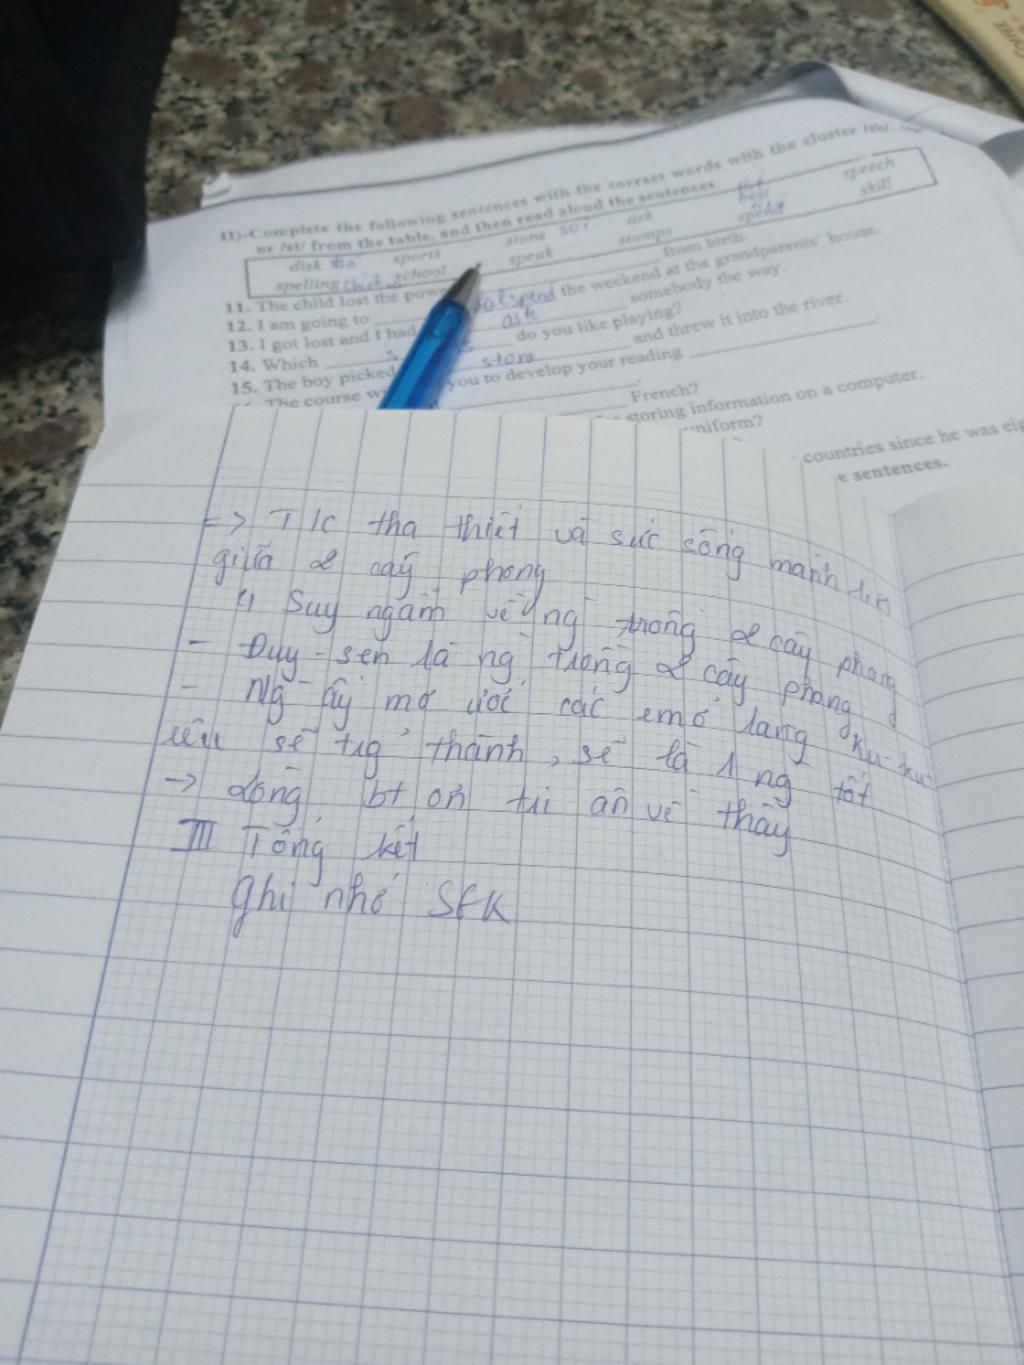 II)-Complete the following sentences with the correct words with the cluster
or /st/ from the table, and then read aloud the sentences.
disk đĩa sports stone ask speech
spelling school speak stamps spend skill
11. The child lost the from birth.
12. I am going to spend the weekend at the grandparents' house.
13. I got lost and I had ask somebody the way.
14. Which do you like playing?
15. The boy picked stone and threw it into the river.
The course you to develop your reading .
French?
storing information on a computer.
uniform?
countries since he was
sentences.
=> T/c tha thiết và sức sống mạnh
giữa 2 cây phong
4 Suy ngẫm về ng trồng 2 cây phong
- Đuy-sen là ng trồng 2 cây phong
- Ng ấy mơ ước các em ở làng Ku-ku
sẽ trg thành, sẽ là 1 ng tốt
-> dòng bt ơn tri ân về thầy
III Tổng kết
Ghi nhớ SGK